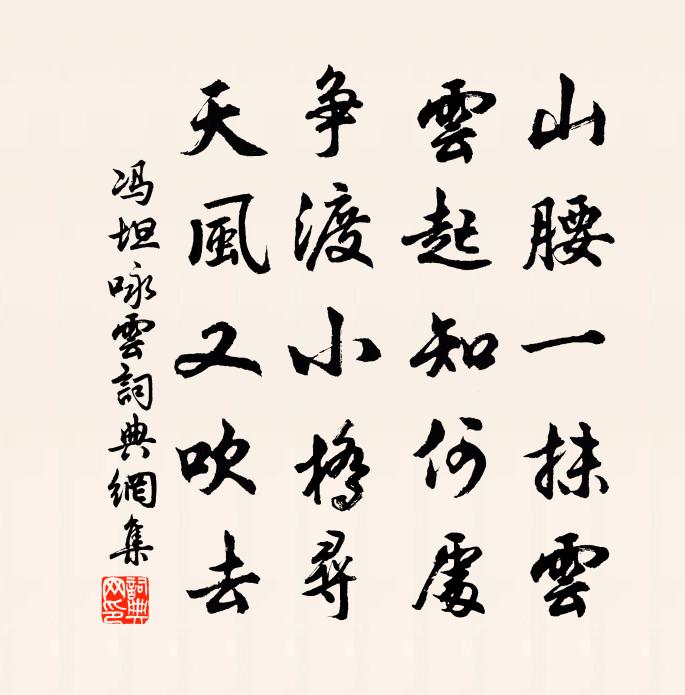 山腰一抹雲
雲起知何處
爭渡小橋尋
天風又吹去
冯坦咏雲詞典網集
詞典網印